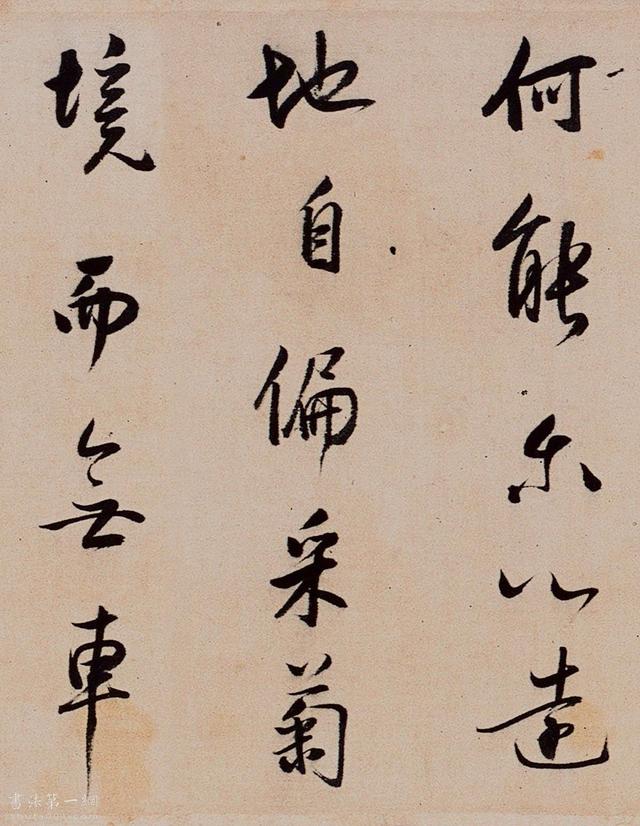 何能尔心遠
地自偏采菊
境而無車
書法第一網